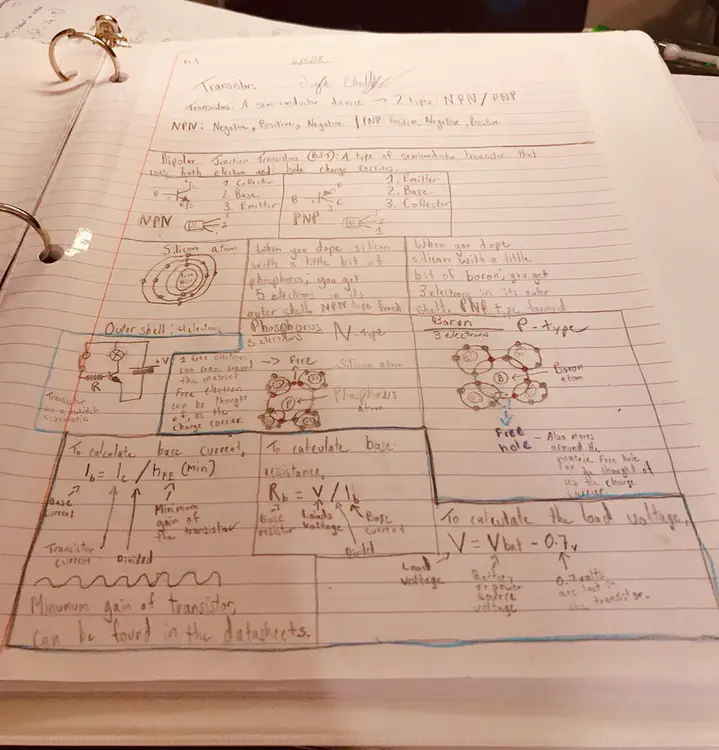 Transistors
Transistors: A semiconductor device → 2 types: NPN/PNP
NPN: Negative, Positive, Negative | PNP Positive, Negative, Positive
Bipolar Junction Transistors (BJT): A type of semiconductor transistor that
uses both electron and hole charge carriers.
C
B
E
1. Collector
2. Base
3. Emitter
NPN
3
2
1
E
B
C
1. Emitter
2. Base
3. Collector
PNP
3
2
1
Silicon atom
Outer shell: 4 electrons
When you dope silicon
with a little bit of
phosphorus, you get
5 electrons in its
outer shell, NPN type formed
Phosphorus N-type
5 electrons
When you dope
silicon with a little
bit of boron, you get
3 electrons in its outer
shell, PNP type formed
Boron P-type
3 electrons
R
+V
Transistor
as a switch
schematic
1 free electron
can roam around
the material
Free electron
can be thought
of, as the
charge carrier.
→ Free
Silicon atom
P
Phosphorus
atom
B
Boron
atom
Free
hole
- Also moves
around the
matrix. Free hole
can be thought of
as the charge
carrier
To calculate base current,
Ib = Ic / hFE (min)
Base
current
Transistor
current
Divided
Minimum
gain of
the transistor
Minumum gain of transistor,
can be found in the datasheets.
To calculate base
resistance,
Rb = V / Ib
Base
resistor
Loads
voltage
Base
Current
Divided
To calculate the load voltage,
V = Vbat - 0.7v
Load
voltage
Battery
or power
source
voltage
0.7 volts
are lost in
the transistor.